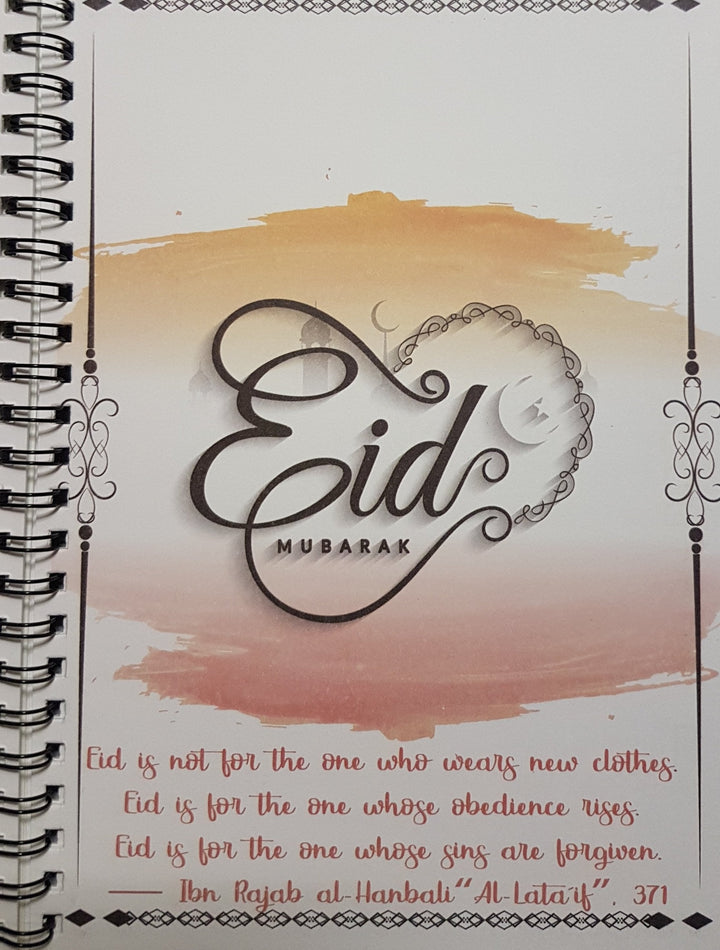 Eid
MUBARAK
Eid is not for the one who wears new clothes.
Eid is for the one whose obedience rises.
Eid is for the one whose sins are forgiven.
— Ibn Rajab al-Hanbali "Al-Lata'if". 371